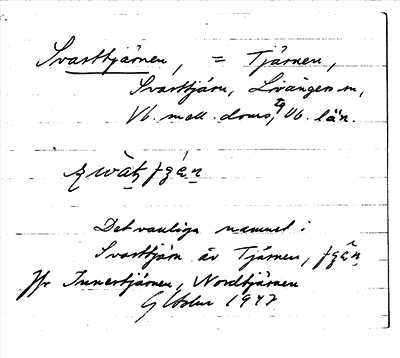 Svarttjärnen, = Tjärnen,
Svarttjärn, Lövångers sn,
Vb. mell. doms. Vb. län.
Det vanliga namnet i
Svarttjärn är Tjärnen,
Jfr Innertjärnen, Nordtjärnen
1942